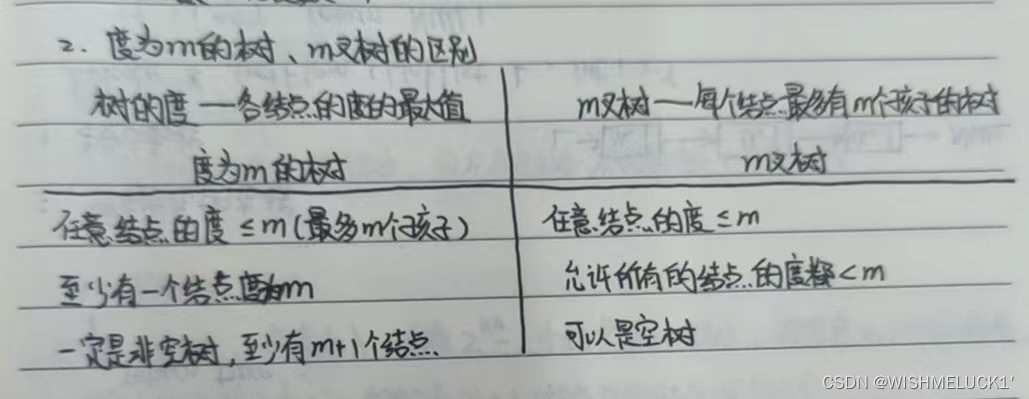 2. 度为m的树、m叉树的区别
树的度——各结点的度的最大值
m叉树——每个结点最多有m个孩子的树
度为m的树
m叉树
任意结点的度≤m(最多m个孩子)
任意结点的度≤m
至少有一个结点度为m
允许所有的结点的度都<m
一定是非空树,至少有m+1个结点
可以是空树
CSDN @WISHMELUCK1'